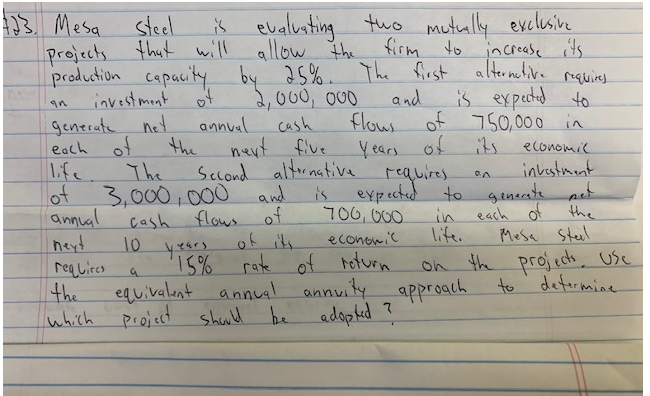 #23. Mesa steel is evaluating two mutually exclusive
projects that will allow the firm to increase its
production capacity by 25%. The first alternative requires
an investment of 2,000,000 and is expected to
generate net annual cash flows of 750,000 in
each of the next five years of its economic
life. The second alternative requires an investment
of 3,000,000 and is expected to generate net
annual cash flows of 700,000 in each of the
next 10 years of its economic life. Mesa Steel
requires a 15% rate of return on the projects. Use
the equivalent annual annuity approach to determine
which project should be adopted?